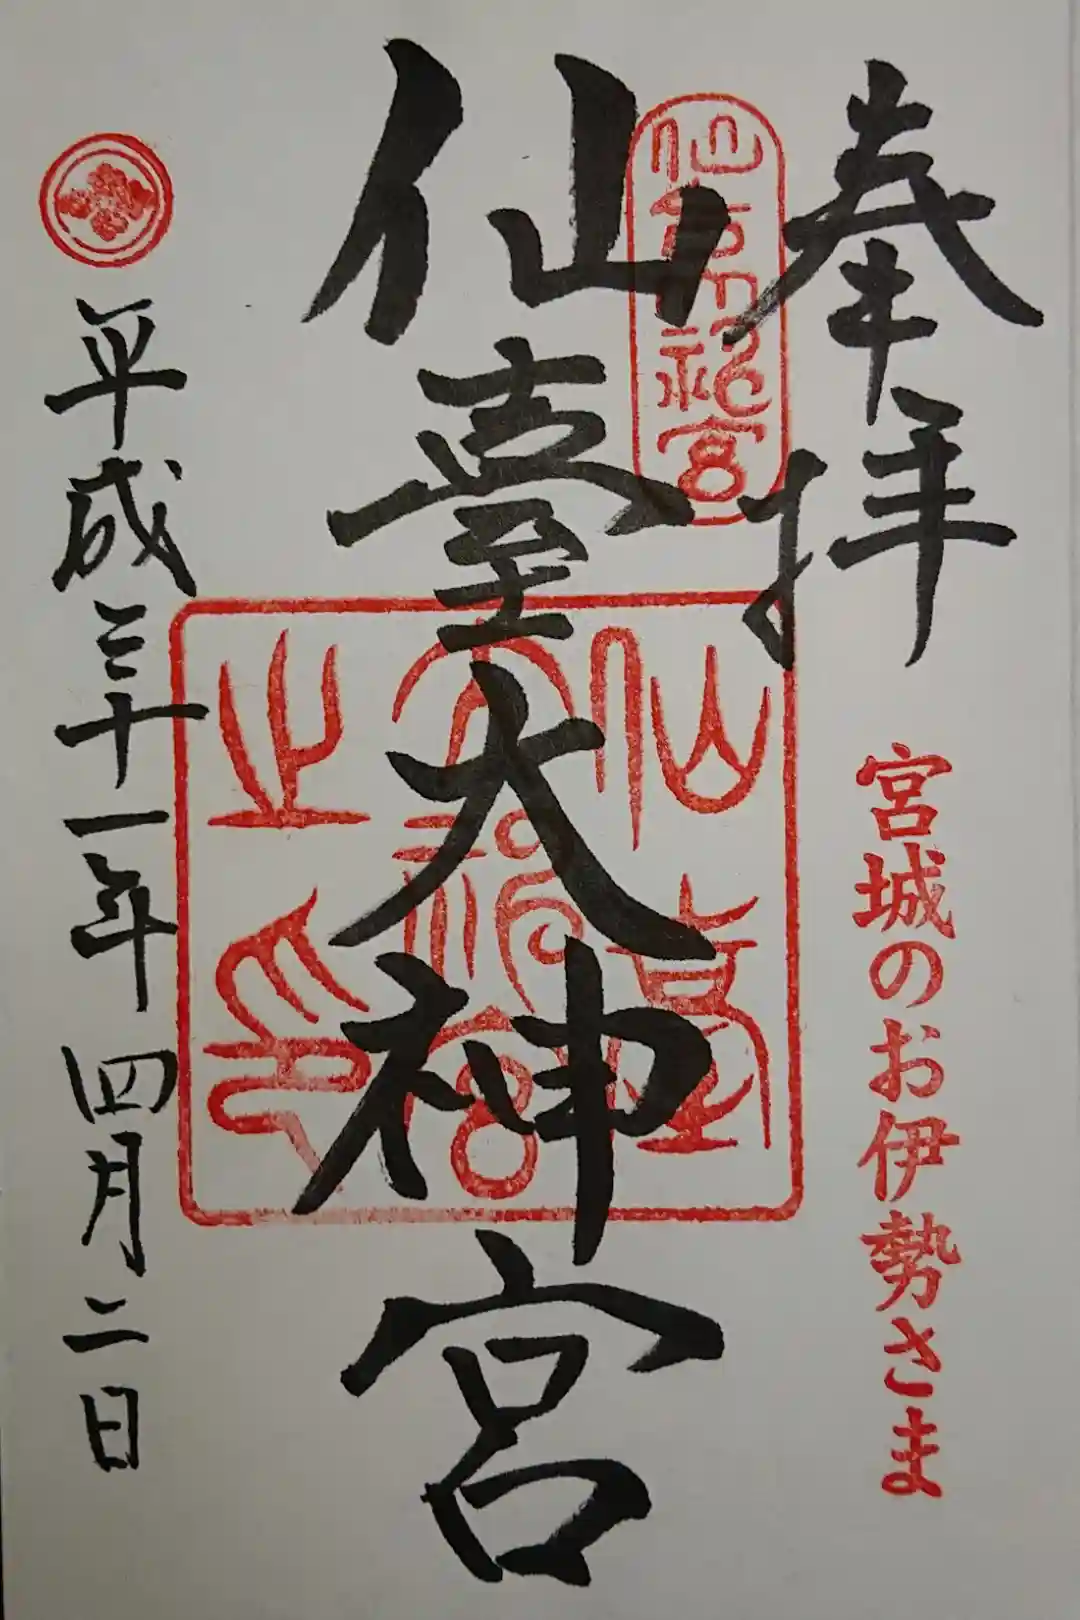 奉拝
宮城のお伊勢さま
仙臺大神宮
仙臺大神宮
仙臺大神宮之印
平成三十一年四月二日